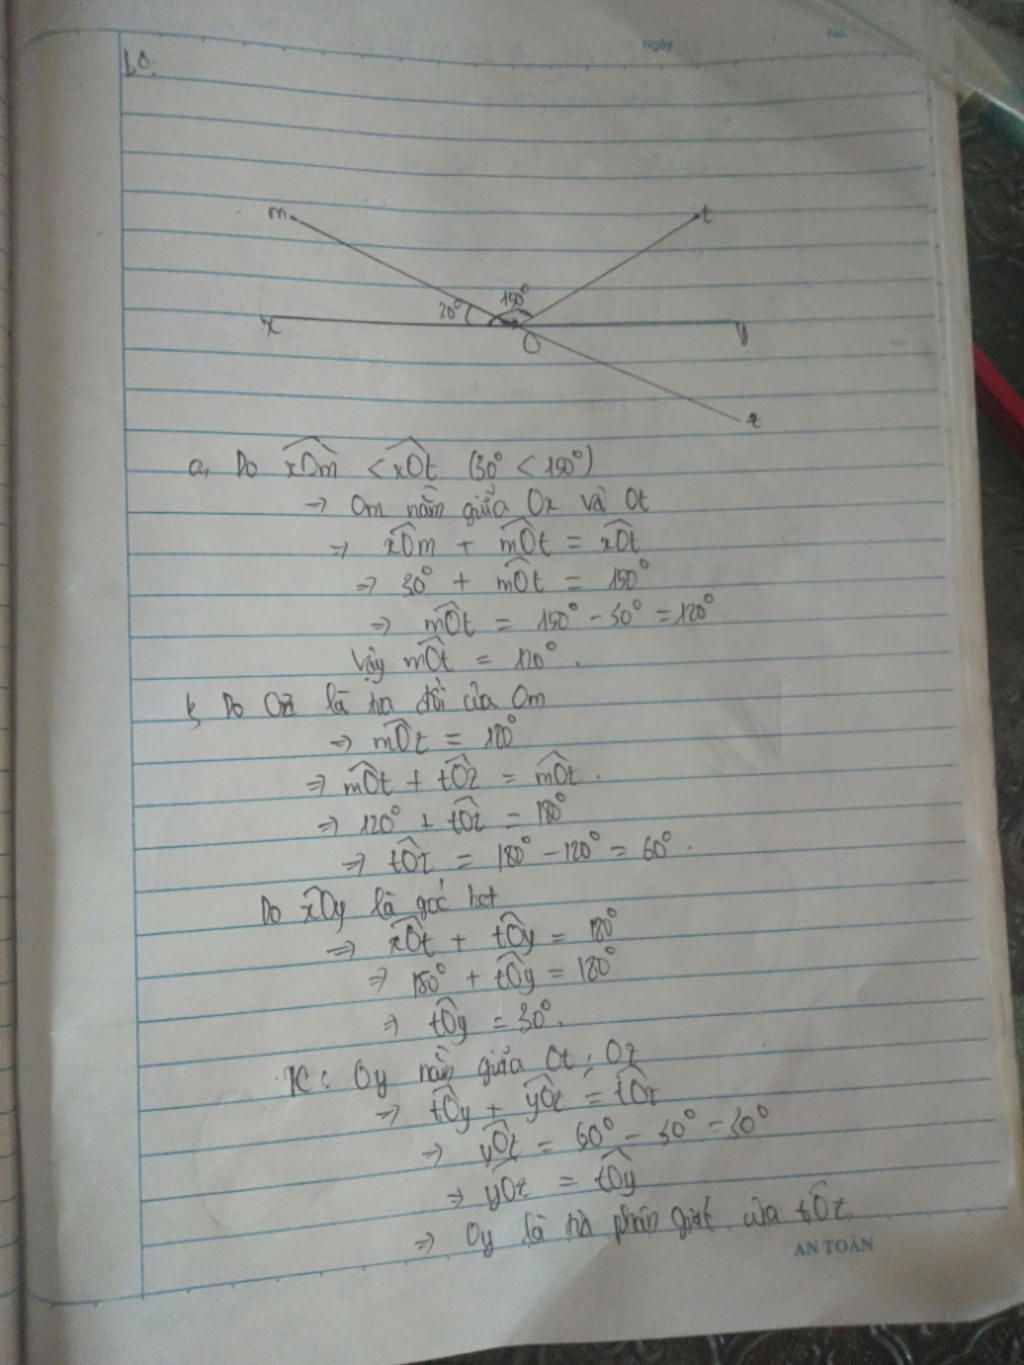 Ngày
No.
m
t
30°
150°
x
y
O
z
a, Do xOm < xOt (30° < 150°)
=> Om nằm giữa Ox và Ot
=> xOm + mOt = xOt
=> 30° + mOt = 150°
=> mOt = 150° - 30° = 120°
Vậy mOt = 120°.
b, Do Oz là tia đối của Om
=> mOt = 180°
=> mOt + tOz = mOt.
=> 120° + tOz = 180°
=> tOz = 180° - 120° = 60°.
Do xOy là góc bẹt
=> xOt + tOy = 180°
=> 150° + tOy = 180°
=> tOy = 30°.
Oy nằm giữa Ot; Oz
=> tOy + yOz = tOz
=> yOt = 60° - 30° = 30°
=> yOz = tOy
=> Oy là tia phân giác của tOz
AN TOÀN